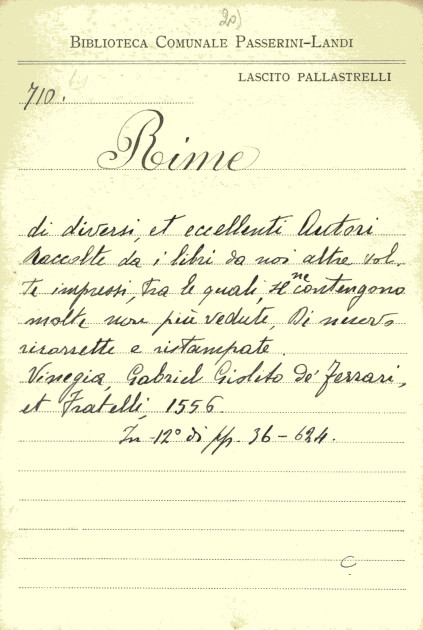 20)
BIBLIOTECA COMUNALE PASSERINI-LANDI
LASCITO PALLASTRELLI
710.
Rime
di diversi, et eccellenti Autori
Raccolte da i libri da noi altre vol-
te impressi, tra le quali, se ne contengono
molte non più vedute, Di nuovo
ricorrette e ristampate.
Vinegia, Gabriel Giolito de' Ferrari,
et Fratelli, 1556.
In-12° di pp. 36-624.
C